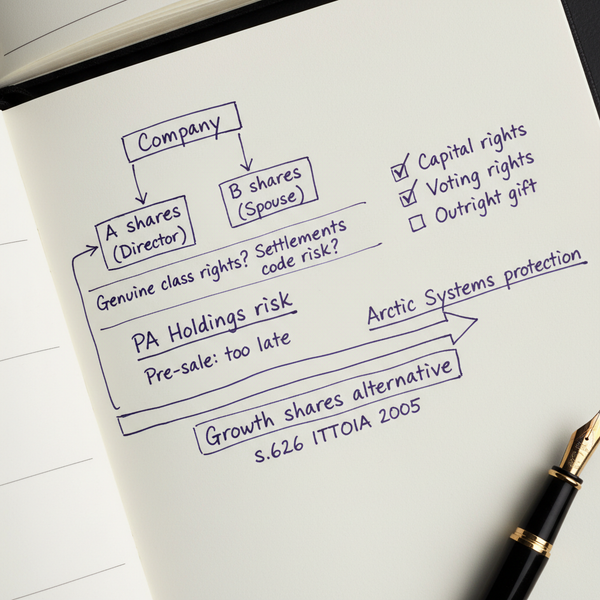 Company
A shares
(Director)
B shares
(Spouse)
☑ Capital rights
☑ Voting rights
☐ Outright gift
Genuine class rights? Settlements
code risk?
PA Holdings risk
Pre-sale: too late
Arctic Systems protection
Growth shares alternative
s.626 ITTOIA 2005